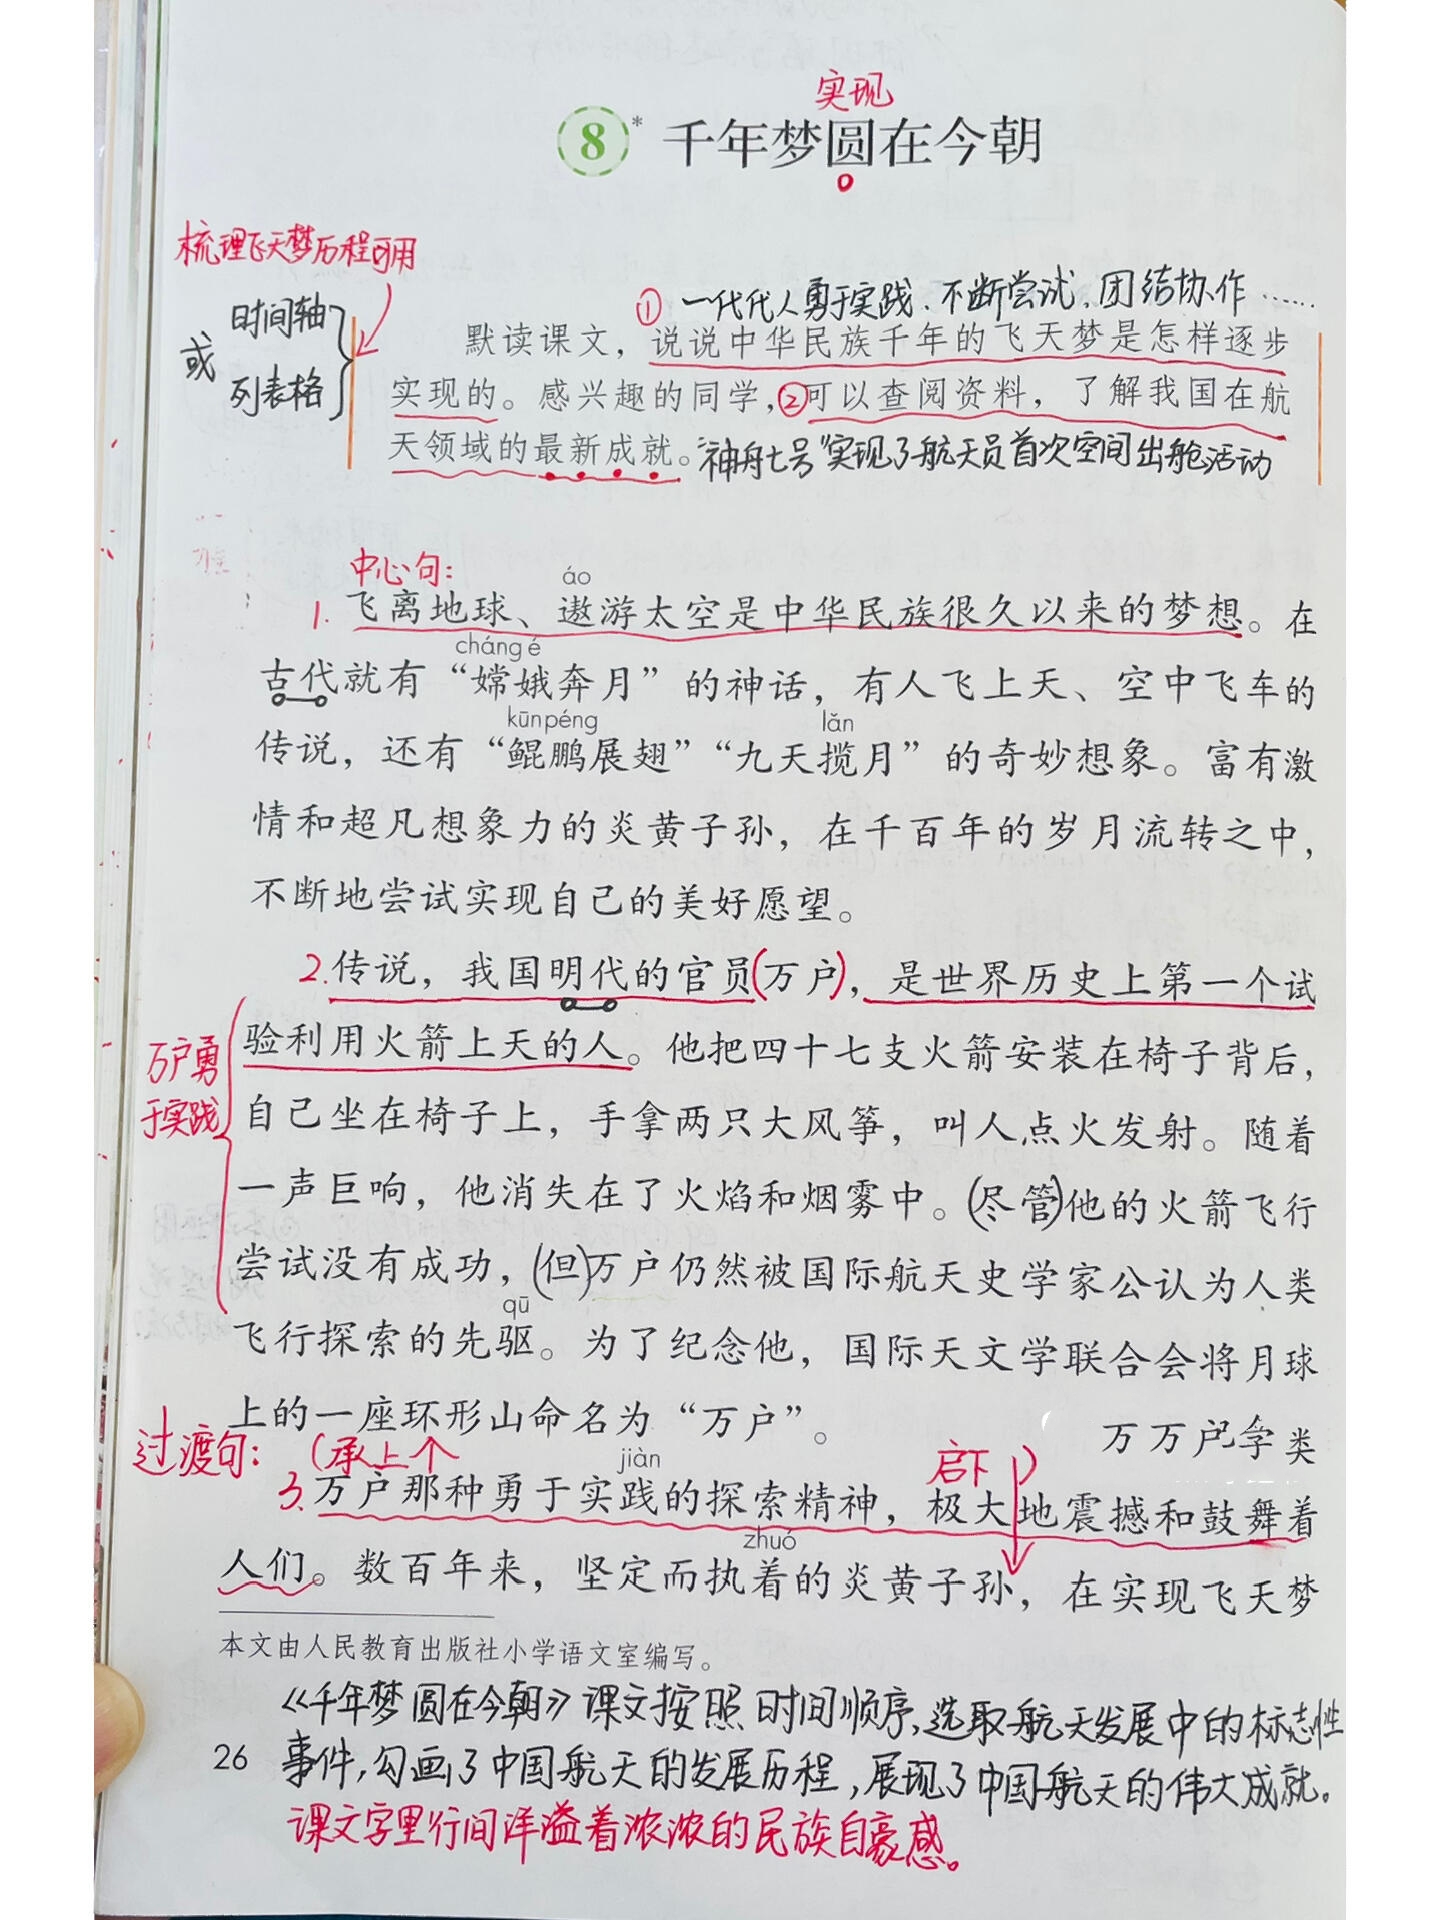 实现
8* 千年梦圆在今朝
梳理飞天梦历程可用
时间轴
或
列表格
① 一代代人勇于实践、不断尝试、团结协作……
默读课文，说说中华民族千年的飞天梦是怎样逐步
实现的。感兴趣的同学，②可以查阅资料，了解我国在航
天领域的最新成就。“神舟七号”实现了航天员首次空间出舱活动
中心句：
áo
1. 飞离地球、遨游太空是中华民族很久以来的梦想。在
cháng é
古代就有“嫦娥奔月”的神话，有人飞上天、空中飞车的
kūn péng lǎn
传说，还有“鲲鹏展翅”“九天揽月”的奇妙想象。富有激
情和超凡想象力的炎黄子孙，在千百年的岁月流转之中，
不断地尝试实现自己的美好愿望。
2. 传说，我国明代的官员(万户)，是世界历史上第一个试
验利用火箭上天的人。他把四十七支火箭安装在椅子背后，
万户勇
于实践
自己坐在椅子上，手拿两只大风筝，叫人点火发射。随着
一声巨响，他消失在了火焰和烟雾中。(尽管)他的火箭飞行
尝试没有成功，(但)万户仍然被国际航天史学家公认为人类
qū
飞行探索的先驱。为了纪念他，国际天文学联合会将月球
上的一座环形山命名为“万户”。
过渡句：（承上个 启下）
jiàn
3. 万户那种勇于实践的探索精神，极大地震撼和鼓舞着
zhuó
人们。数百年来，坚定而执着的炎黄子孙，在实现飞天梦
本文由人民教育出版社小学语文室编写。
《千年梦圆在今朝》课文按照时间顺序，选取航天发展中的标志性
26
事件，勾画了中国航天的发展历程，展现了中国航天的伟大成就。
课文字里行间洋溢着浓浓的民族自豪感。